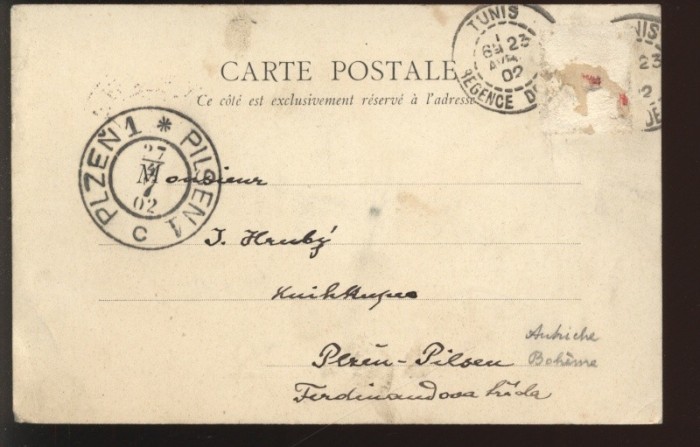 TUNIS
23
AVRIL
02
REGENCE DE
NIS
23
2
CARTE POSTALE
Ce côté est exclusivement réservé à l'adresse
PLZEŇ 1 * PILSEN 1
27
02
C
Monsieur
J. Hrubý
knihkupec
Plzeň-Pilsen
Autriche
Bohême
Ferdinandova třída